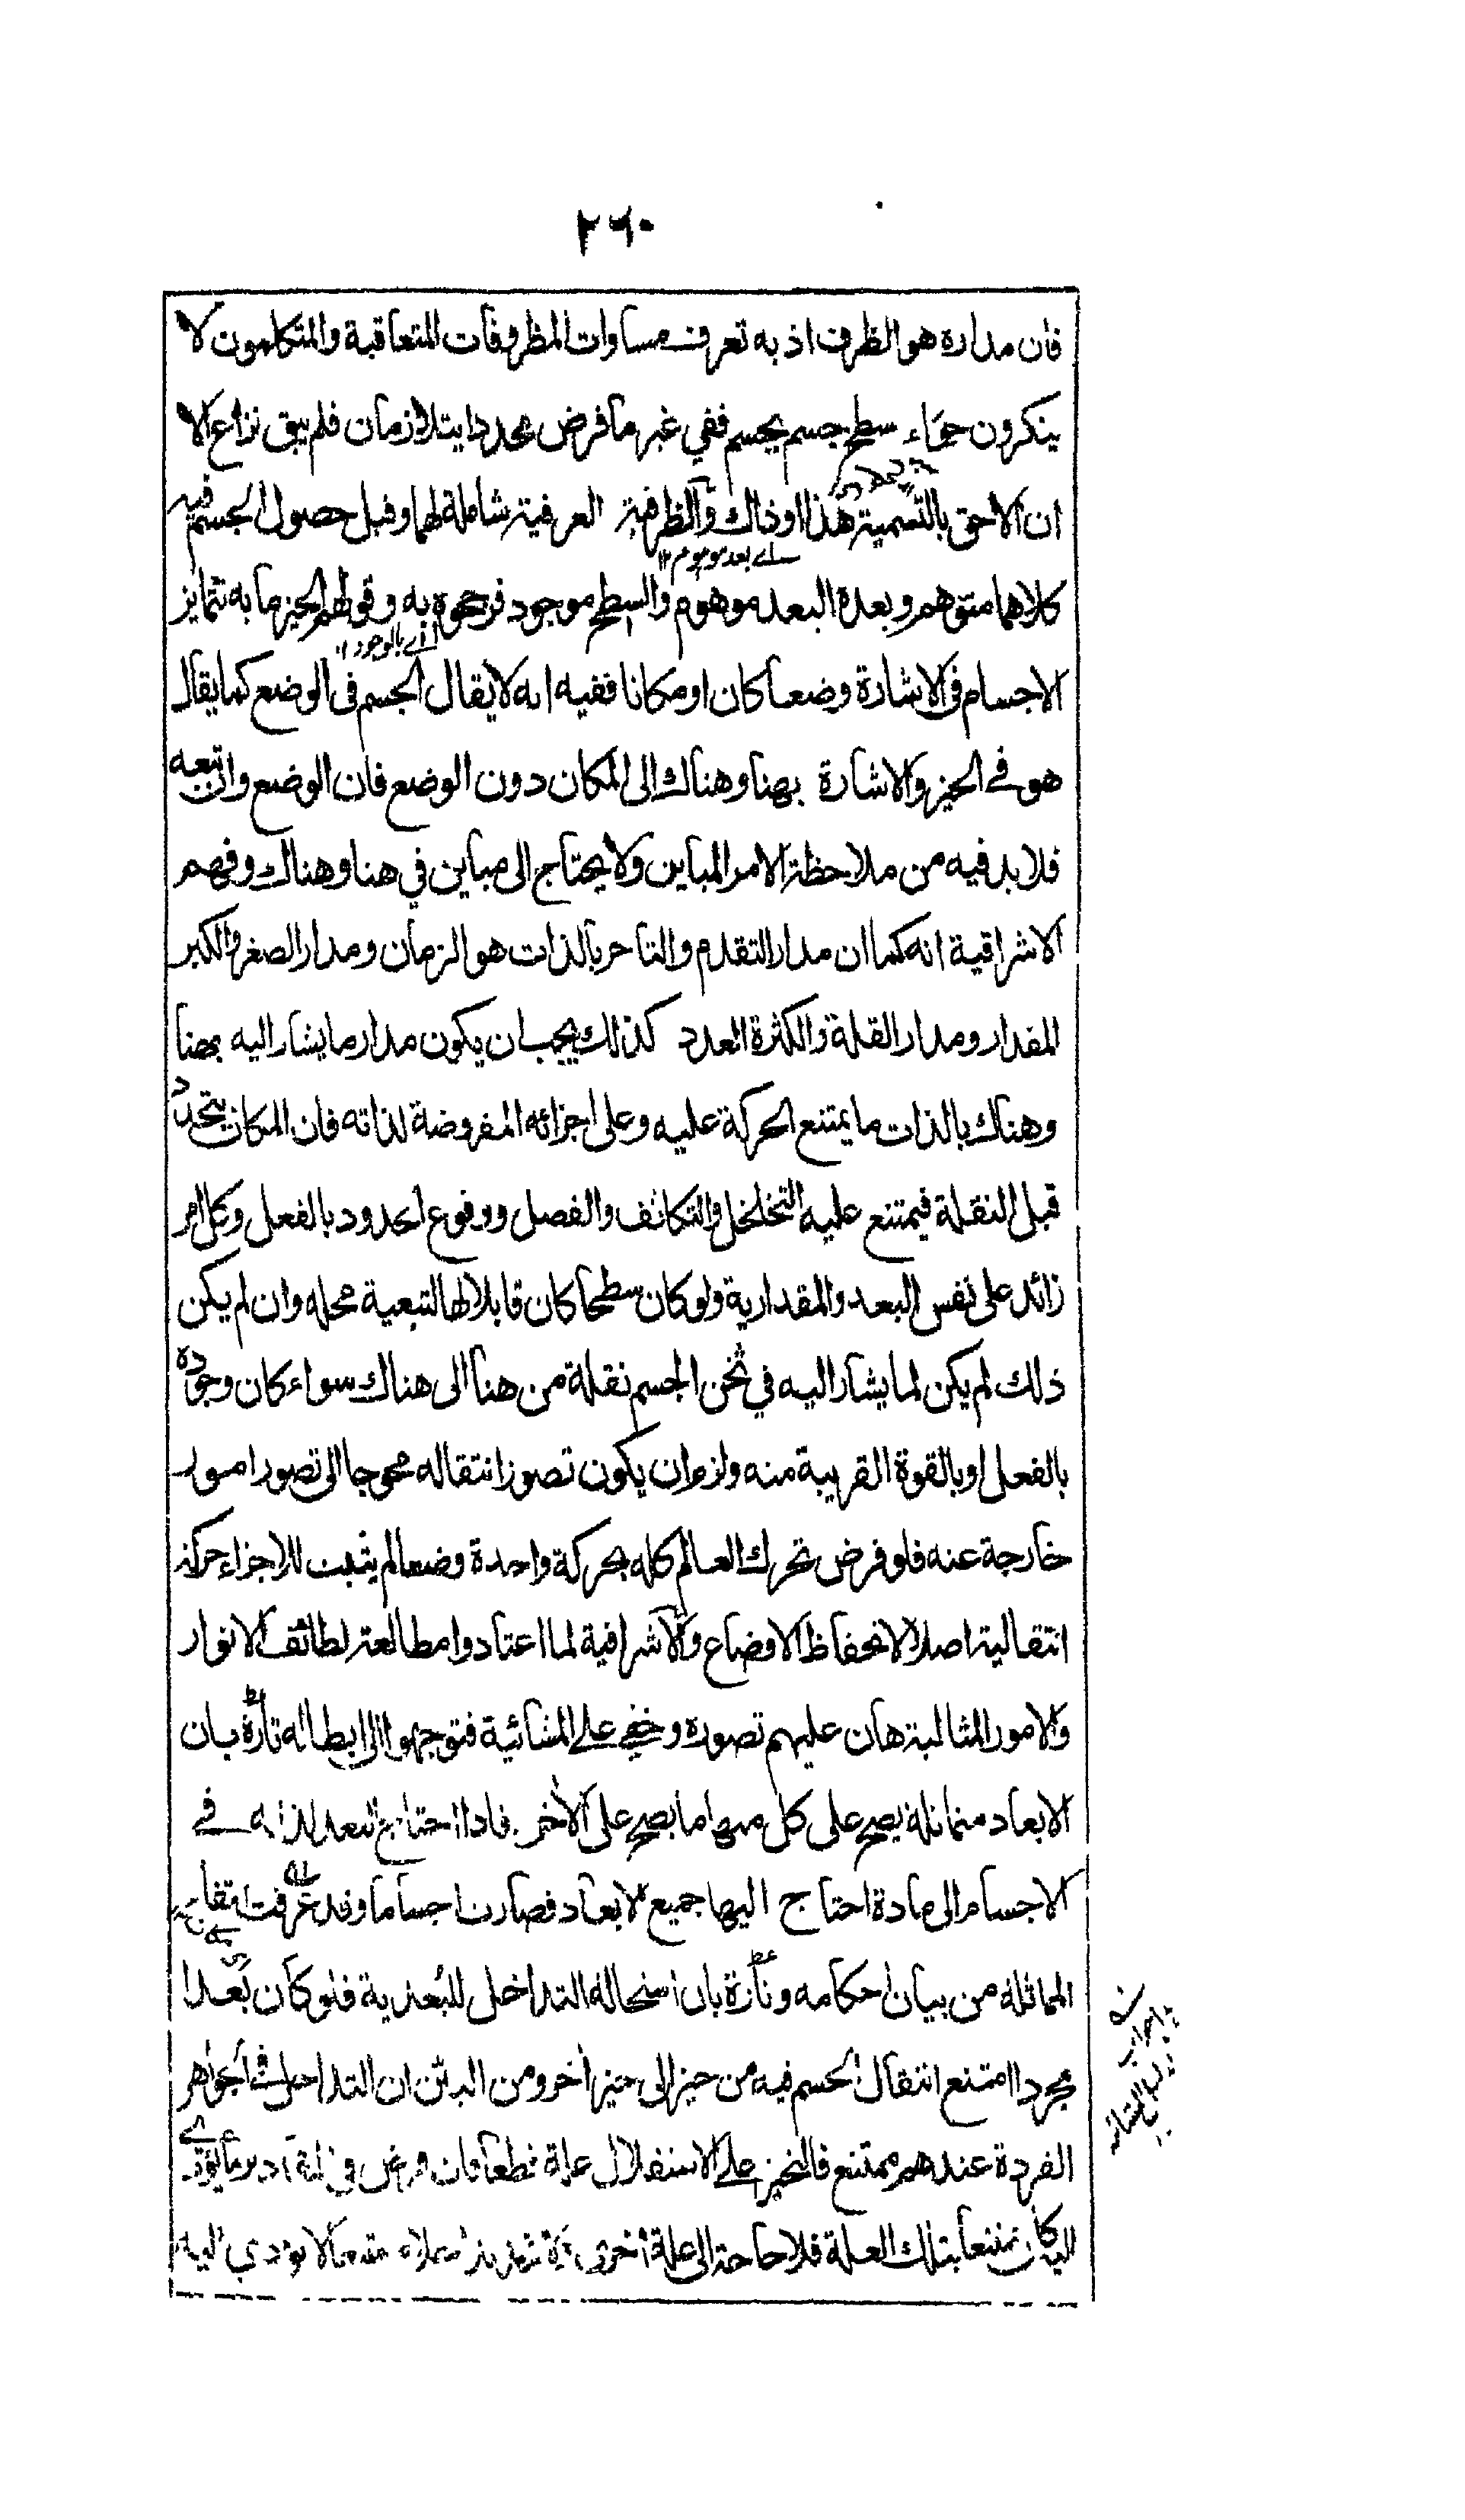 ٢٦٠
فان مداره هو الظرف اذ به تعرف مساوات المظروفات المتعاقبة والمتكلمون لا
ينكرون حواء سطح جسم بجسم ففي غير ما فرض محددا يتلازمان فلم يبق نزاع الا
ان الاحق بالتسمية هذا او ذاك والظرفية العرفية شاملة لهما وقبل حصول الجسم فيه
اے بعد موهوم ١٢
كلاهما متوهم وبعده البعد موهوم والسطح موجود فرجحوه به وقولهم الحيز ما به تتمايز
اے بالوجود ١٢
الاجسام فى الاشارة وضعا كان او مكانا ففيه انه لا يقال الجسم فى الوضع كما يقال
هو فے الحيز والاشارة بهنا وهناك الى المكان دون الوضع فان الوضع وان تبعه
فلا بد فيه من ملاحظة الامر المباين ولا يحتاج الى مباين في هنا وهناك وفهم
الاشراقية انه كما ان مدار التقدم والتاخر بالذات هو الزمان ومدار الصغر والكبر
المقدار ومدار القلة والكثرة العدد كذلك يجب ان يكون مدار ما يشار اليه بهنا
وهناك بالذات ما يمتنع الحركة عليه وعلى اجزائه المفروضة لذاته فان المكان يتحدد
قبل النقلة فيمتنع عليه التخلخل والتكاثف والفصل ووقوع الحدود بالفعل وكل امر
زائد على نفس البعد والمقدارية ولو كان سطحا كان قابلا لها لتبعية محله وان لم يكن
ذلك لم يكن لما يشار اليه في ثخن الجسم نقلة من هنا الى هناك سواء كان وجوده
بالفعل او بالقوة القريبة منه ولزم ان يكون تصور انتقاله محوجا الى تصور امور
خارجة عنه فلو فرض تحرك العالم كله بحركة واحدة وضعا لم يثبت للاجزاء حركة
انتقالية اصلا لانحفاظ الاوضاع والاشراقية لما اعتادوا مطالعة لطائف الانوار
والامور المثالية هان عليهم تصوره وخفي علے المشائية فتوجهوا الى ابطاله تارة بان
الابعاد متماثلة يصح على كل منها ما يصح على الآخر فاذا احتاج البعد لذاته فے
الاجسام الى مادة احتاج اليها جميع الابعاد فصارت اجساما وقد عرفت
المماثلة من بيان احكامه وتارة بان استحالة التداخل للبعدية فلو كان بعدا
مجردا امتنع انتقال الجسم فيه من حيز الى حيز آخر ومن البين ان التداخل فى الجواهر
الفردة عندهم ممتنع فالتحيز على الاستقلال علة قطعا فان فرض
اليه كان ممتنعا بتلك العلة فلا حاجة الى علة اخرى لا يؤدي اليه